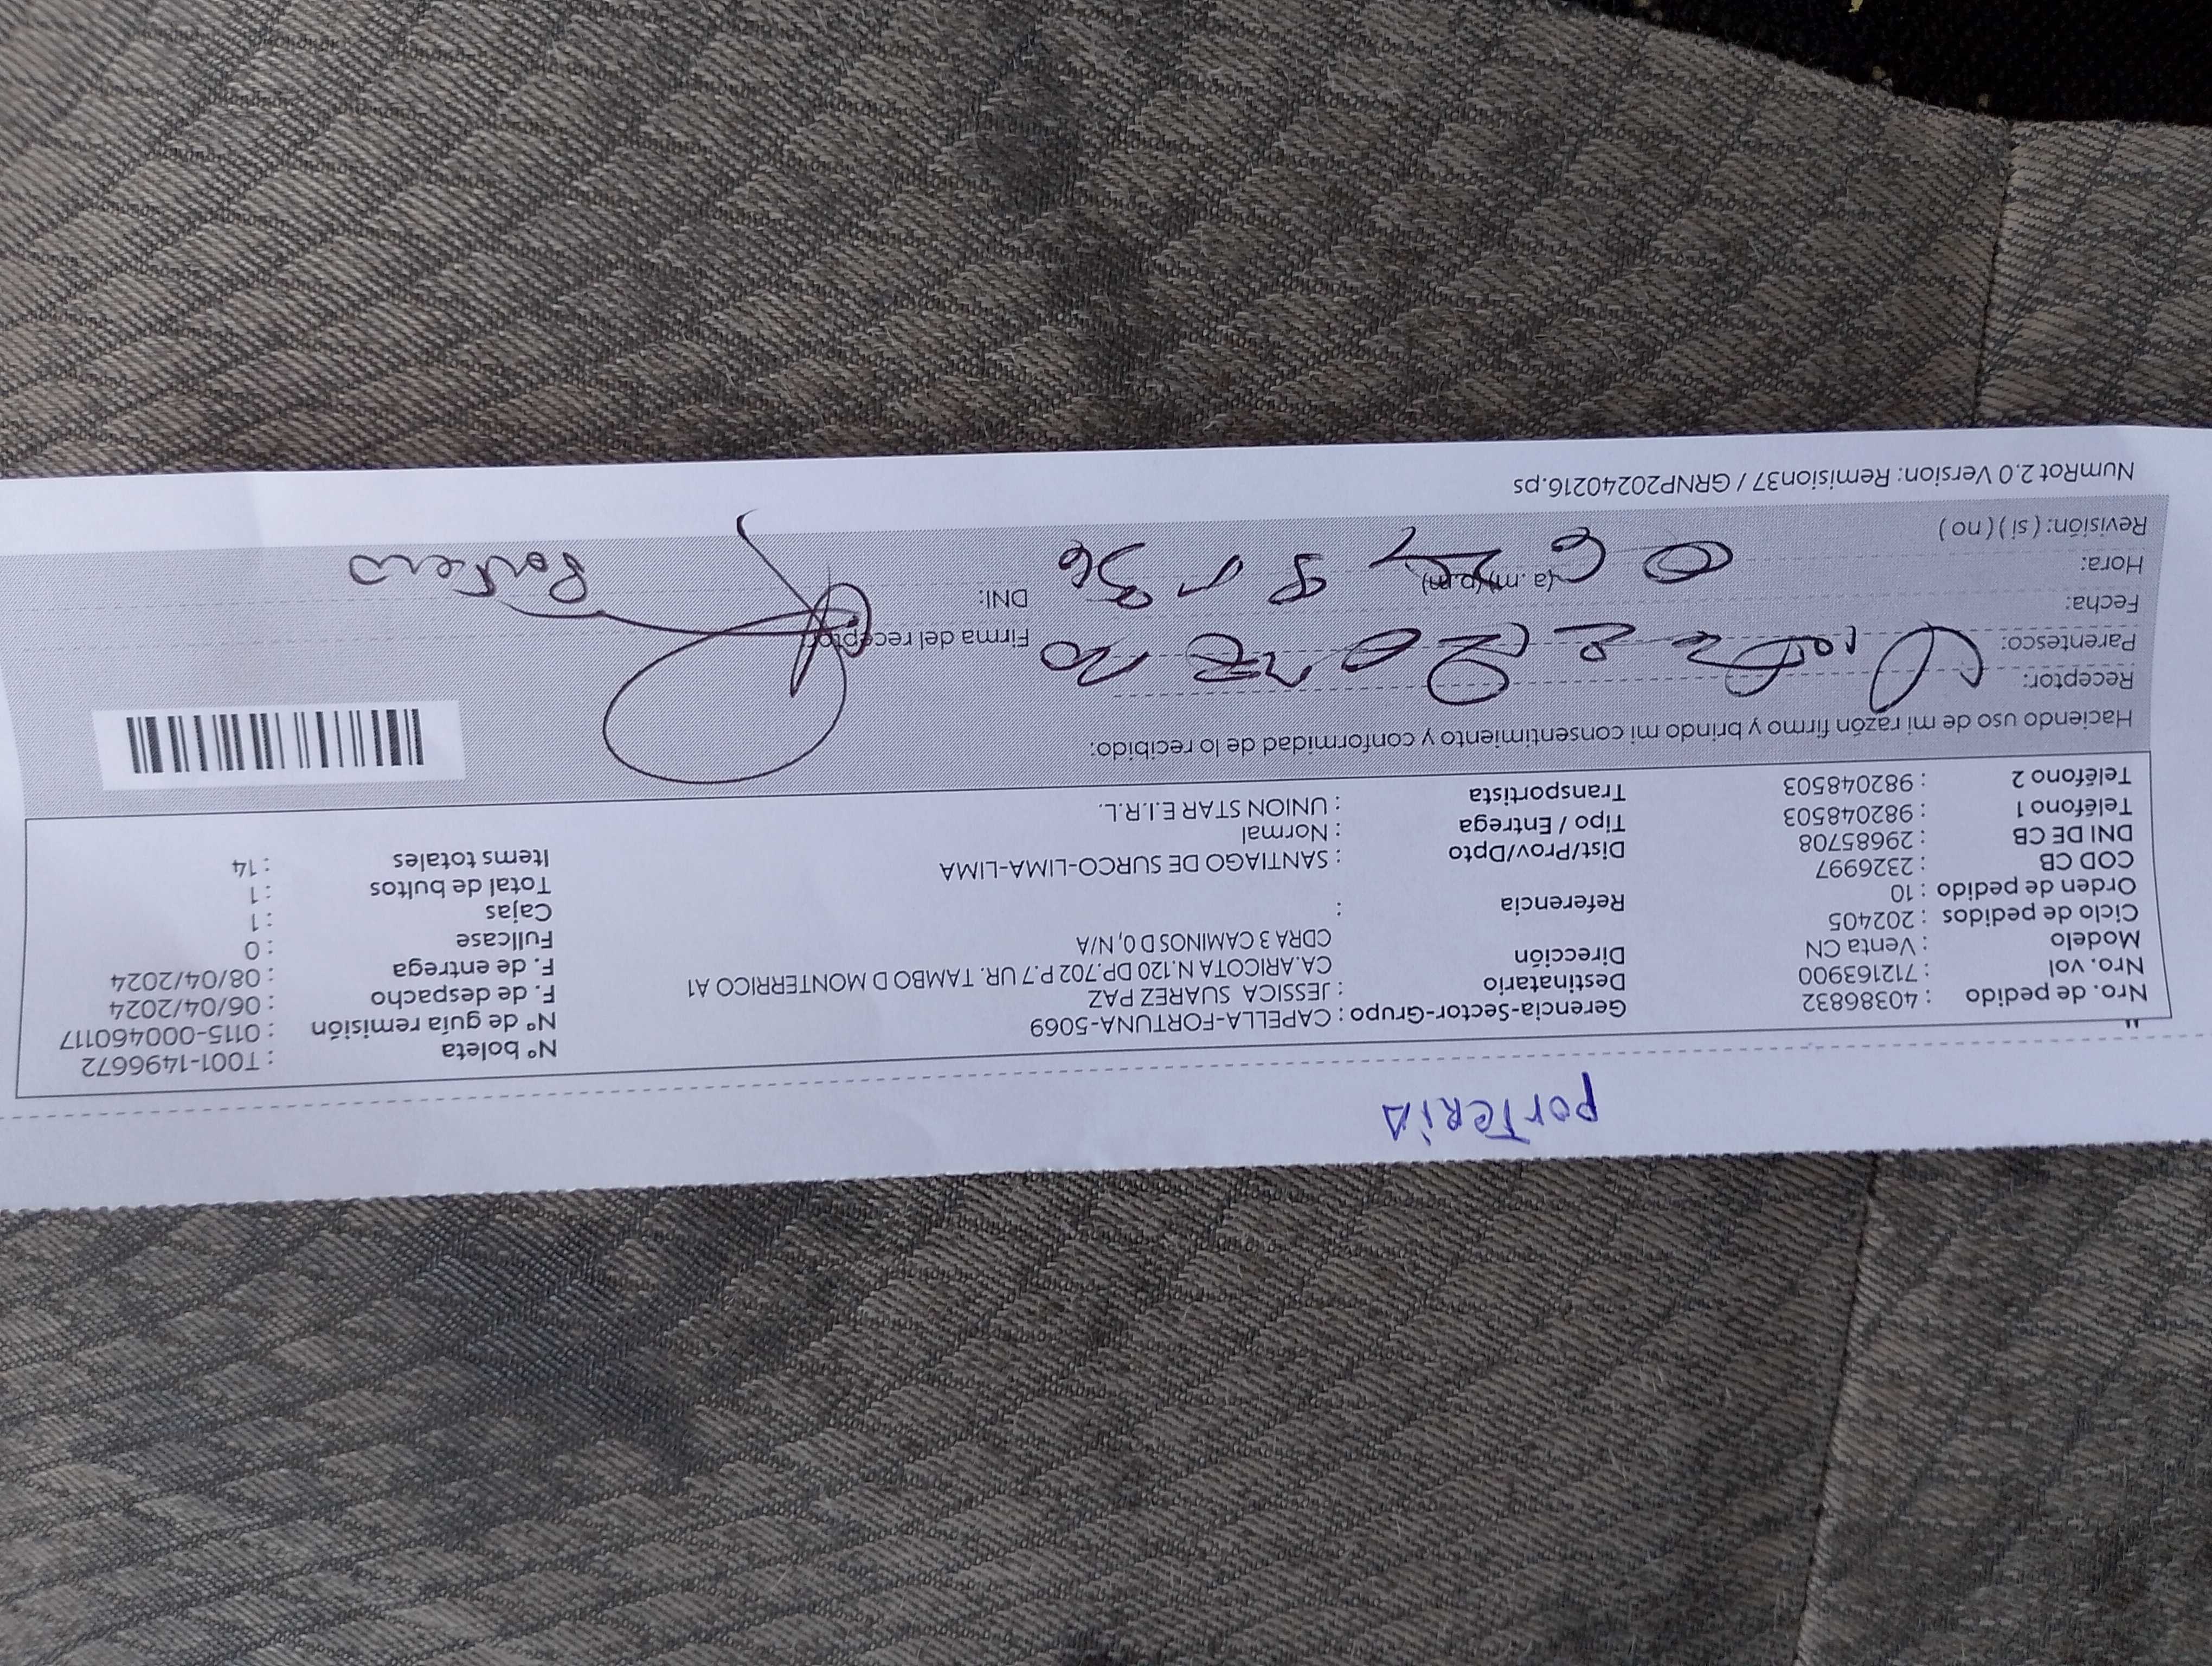 PORTERIA
"
Nro. de pedido : 40386832
Nro. vol : 712163900
Modelo : Venta CN
Ciclo de pedidos : 202405
Orden de pedido : 10
COD CB : 2326997
DNI DE CB : 29685708
Teléfono 1 : 982048503
Teléfono 2 : 982048503
Gerencia-Sector-Grupo : CAPELLA-FORTUNA-5069
Destinatario : JESSICA SUAREZ PAZ
Dirección CA.ARICOTA N.120 DP.702 P.7 UR. TAMBO D MONTERRICO A1
CDRA 3 CAMINOS D 0, N/A
Referencia :
Dist/Prov/Dpto : SANTIAGO DE SURCO-LIMA-LIMA
Tipo / Entrega : Normal
Transportista : UNION STAR E.I.R.L.
N° boleta : T001-1496672
N° de guía remisión : 0115-000460117
F. de despacho : 06/04/2024
F. de entrega : 08/04/2024
Fullcase : 0
Cajas : 1
Total de bultos : 1
Items totales : 14
Haciendo uso de mi razón firmo y brindo mi consentimiento y conformidad de lo recibido:
Receptor:
Parentesco:
Fecha:
Hora: (a.m)(p.m)
Revisión: ( si ) ( no )
Firma del receptor
DNI:
Portero
NumRot 2.0 Version: Remision37 / GRNP20240216.ps